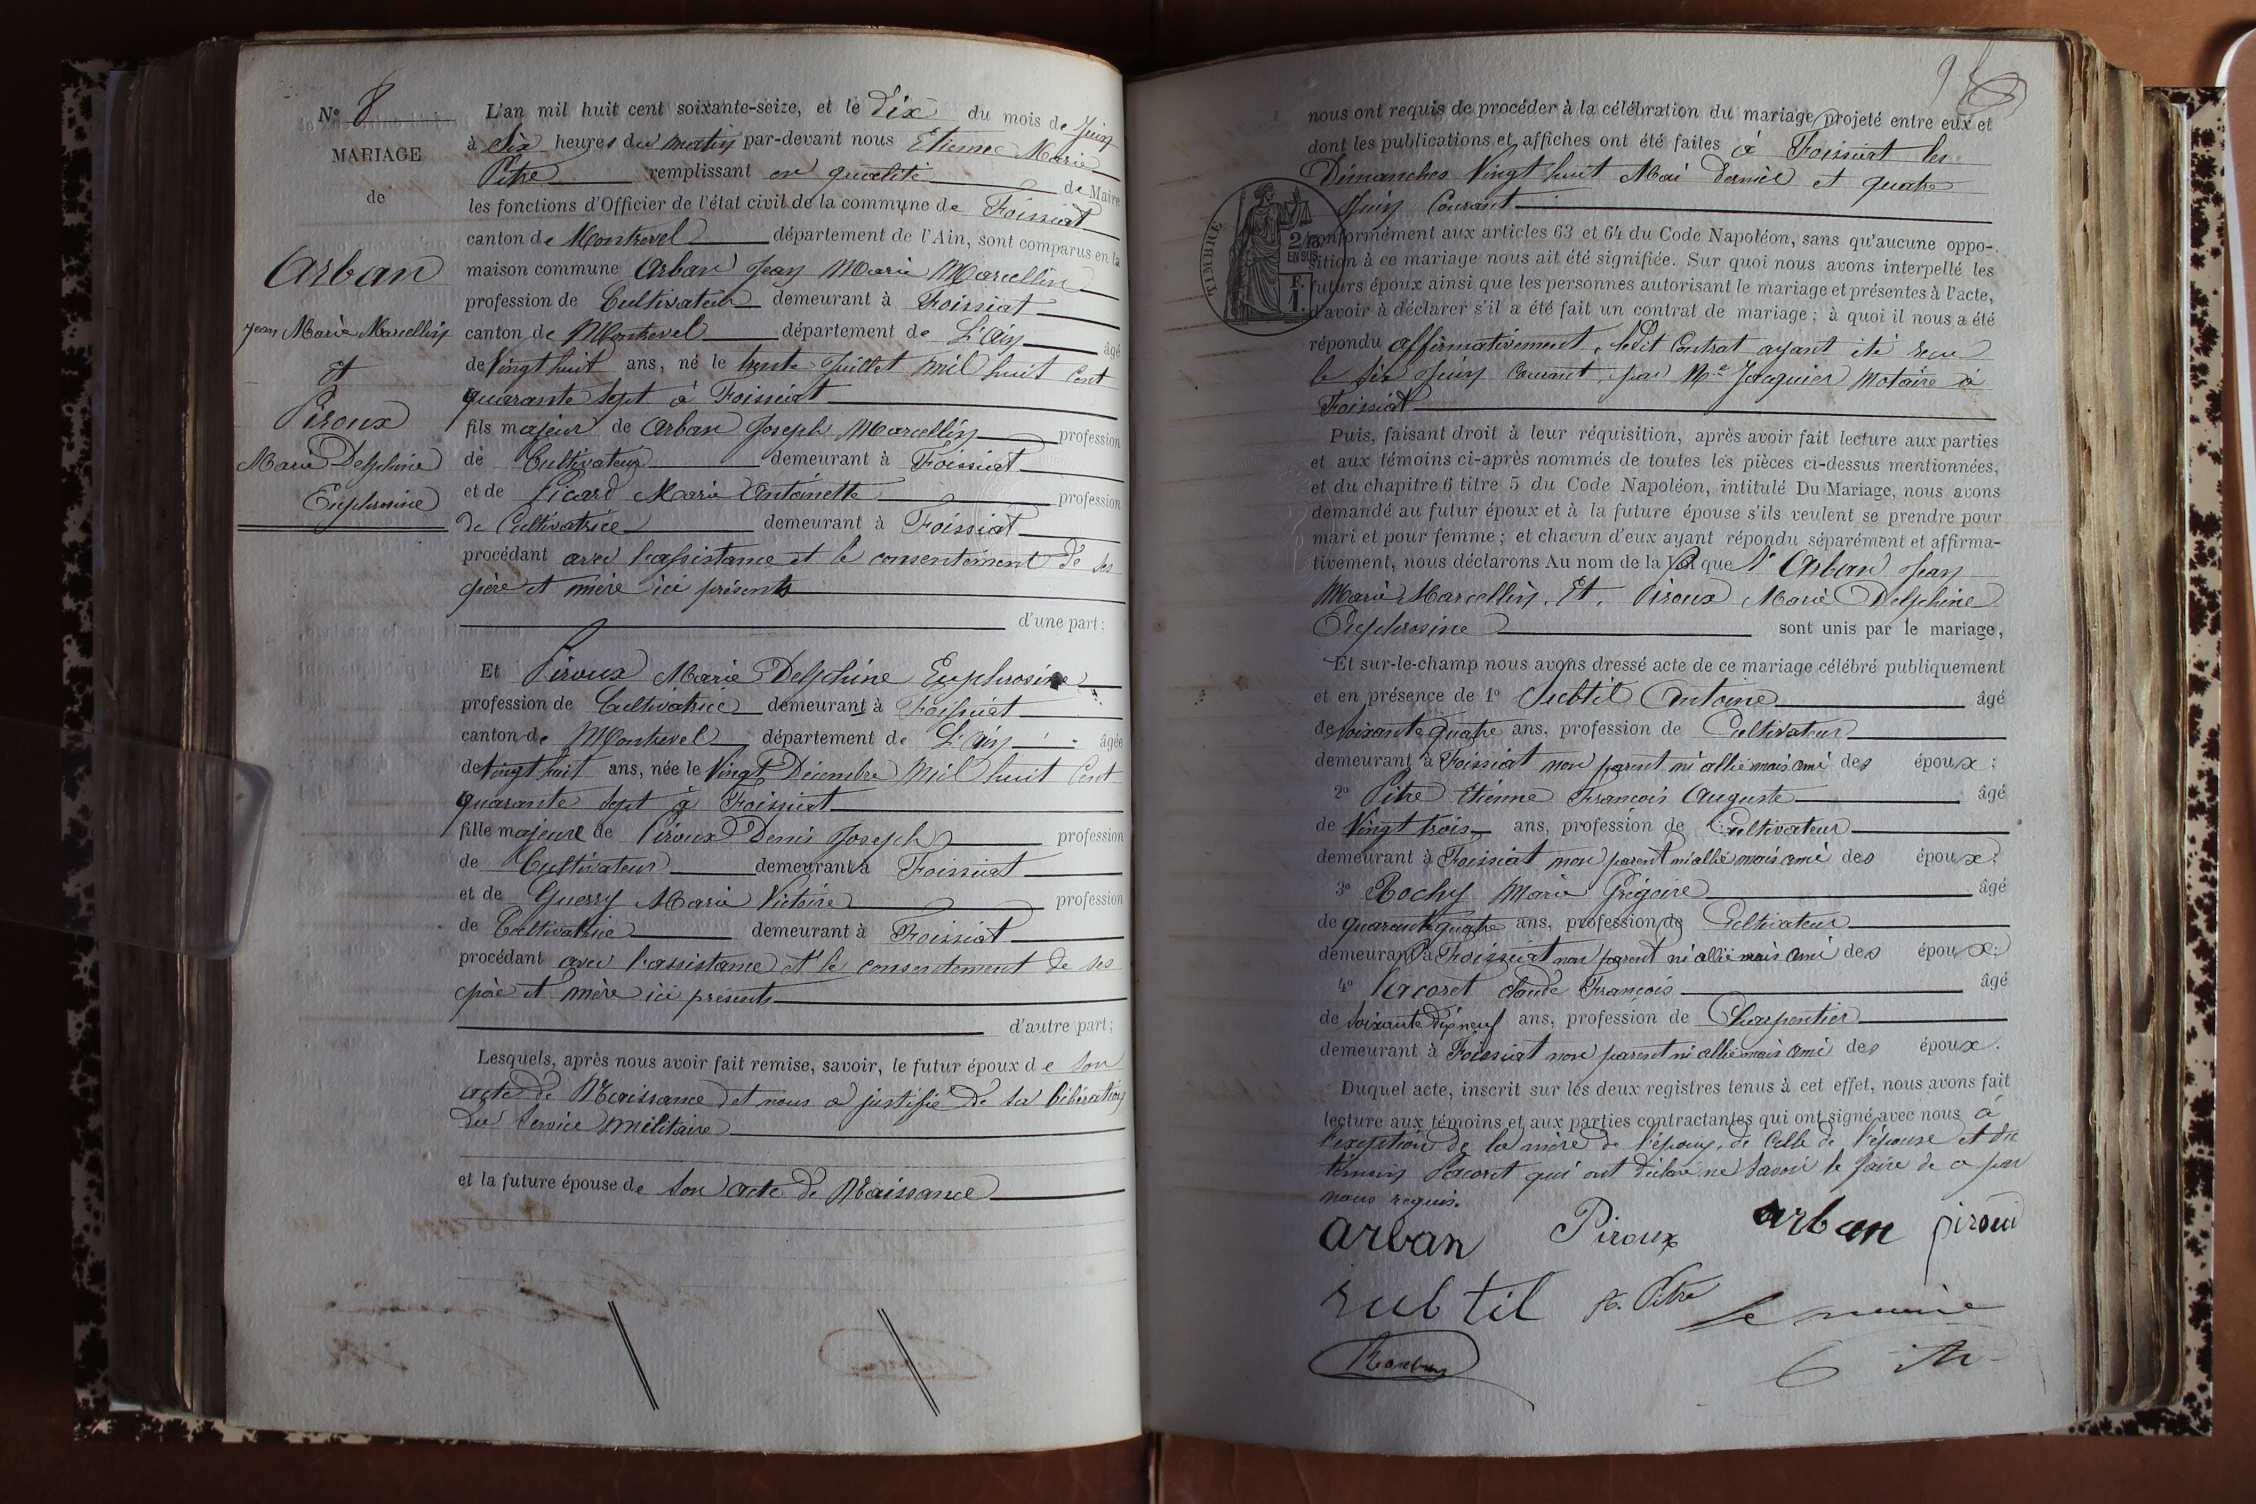 N° 8
MARIAGE
de
Arban
Jean Marie Marcellin
et
Piroux
Marie Delphine
Euphrosine
L'an mil huit cent soixante-seize, et le Dix du mois de Juin
à Six heures du matin par-devant nous Etienne Marie
Pitre remplissant en qualité de Maire
les fonctions d'Officier de l'état civil de la commune de Foissiat
canton de Montrevel département de l'Ain, sont comparus en la
maison commune Arban Jean Marie Marcellin
profession de Cultivateur demeurant à Foissiat
canton de Montrevel département de L'Ain âgé
de Vingt huit ans, né le trente Juillet mil huit Cent
quarante Sept à Foissiat
fils majeur de Arban Joseph Marcellin profession
de Cultivateur demeurant à Foissiat
et de Picard Marie Antoinette profession
de Cultivatrice demeurant à Foissiat
procédant avec l'assistance et le consentement de ses
père et mère ici présents
d'une part;
Et Piroux Marie Delphine Euphrosine
profession de Cultivatrice demeurant à Foissiat
canton de Montrevel département de L'Ain âgée
de Vingt huit ans, née le Vingt Décembre Mil huit Cent
quarante Sept à Foissiat
fille majeure de Piroux Denis Joseph profession
de Cultivateur demeurant à Foissiat
et de Guerry Marie Victoire profession
de Cultivatrice demeurant à Foissiat
procédant avec l'assistance et le consentement de ses
père et mère ici présents
d'autre part;
Lesquels, après nous avoir fait remise, savoir, le futur époux de son
acte de Naissance et nous a justifié de sa libération
du Service militaire
et la future épouse de son acte de Naissance
nous ont requis de procéder à la célébration du mariage projeté entre eux et
dont les publications et affiches ont été faites à Foissiat les
Dimanches Vingt huit Mai dernier et quatre
Juin Courant
TIMBRE
2/10
EN SUS
F.
1.
conformément aux articles 63 et 64 du Code Napoléon, sans qu'aucune oppo-
sition à ce mariage nous ait été signifiée. Sur quoi nous avons interpellé les
futurs époux ainsi que les personnes autorisant le mariage et présentes à l'acte,
d'avoir à déclarer s'il a été fait un contrat de mariage; à quoi il nous a été
répondu affirmativement, ledit Contrat ayant été recu
le six Juin Courant, par Me Jacquier Notaire à
Foissiat
Puis, faisant droit à leur réquisition, après avoir fait lecture aux parties
et aux témoins ci-après nommés de toutes les pièces ci-dessus mentionnées,
et du chapitre 6 titre 5 du Code Napoléon, intitulé Du Mariage, nous avons
demandé au futur époux et à la future épouse s'ils veulent se prendre pour
mari et pour femme; et chacun d'eux ayant répondu séparément et affirma-
tivement, nous déclarons Au nom de la Loi que Arban Jean
Marie Marcellin, Et, Piroux Marie Delphine
Euphrosine sont unis par le mariage,
Et sur-le-champ nous avons dressé acte de ce mariage célébré publiquement
et en présence de 1° Subtil Antoine âgé
de soixante quatre ans, profession de Cultivateur
demeurant à Foissiat non parent ni allié mais ami des époux;
2° Pitre Etienne François Auguste âgé
de Vingt trois ans, profession de Cultivateur
demeurant à Foissiat non parent ni allié mais ami des époux;
3° Rochy Marie Grégoire âgé
de quarante quatre ans, profession de Cultivateur
demeurant à Foissiat non parent ni allié mais ami des époux;
4° Pacoret Claude François âgé
de soixante dix neuf ans, profession de Charpentier
demeurant à Foissiat non parent ni allié mais ami des époux.
Duquel acte, inscrit sur les deux registres tenus à cet effet, nous avons fait
lecture aux témoins et aux parties contractantes qui ont signé avec nous à
l'exeption de la mère de l'époux, de Celle de l'épouse et du
témoin Pacoret qui ont déclaré ne Savoir le faire de ce par
nous requis.
arban Piroux arban piroux
subtil Pitre le maire